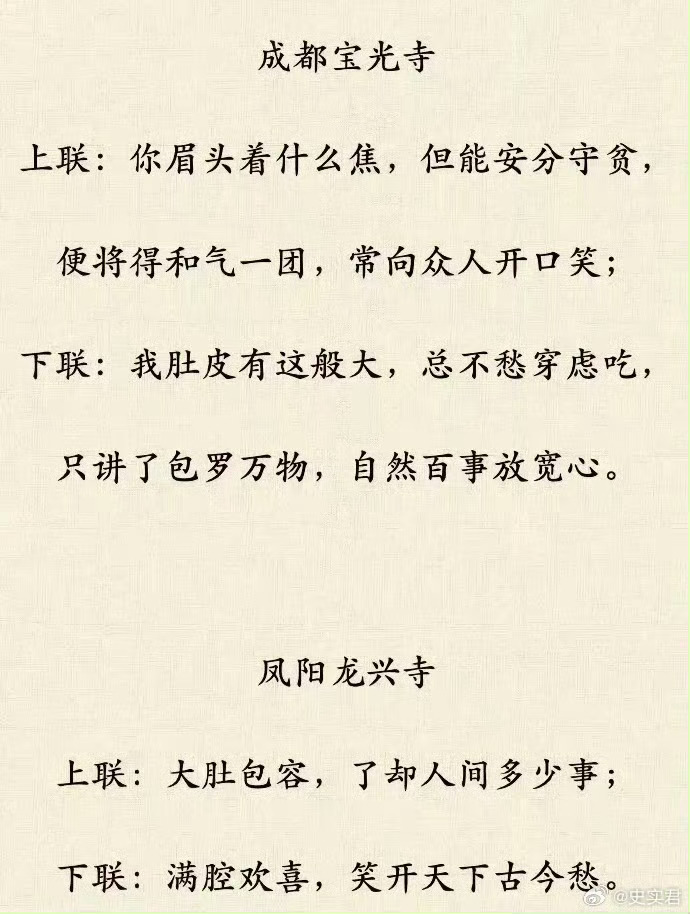 成都宝光寺
上联：你眉头着什么焦，但能安分守贫，
便将得和气一团，常向众人开口笑；
下联：我肚皮有这般大，总不愁穿虑吃，
只讲了包罗万物，自然百事放宽心。
凤阳龙兴寺
上联：大肚包容，了却人间多少事；
下联：满腔欢喜，笑开天下古今愁。
@史实君